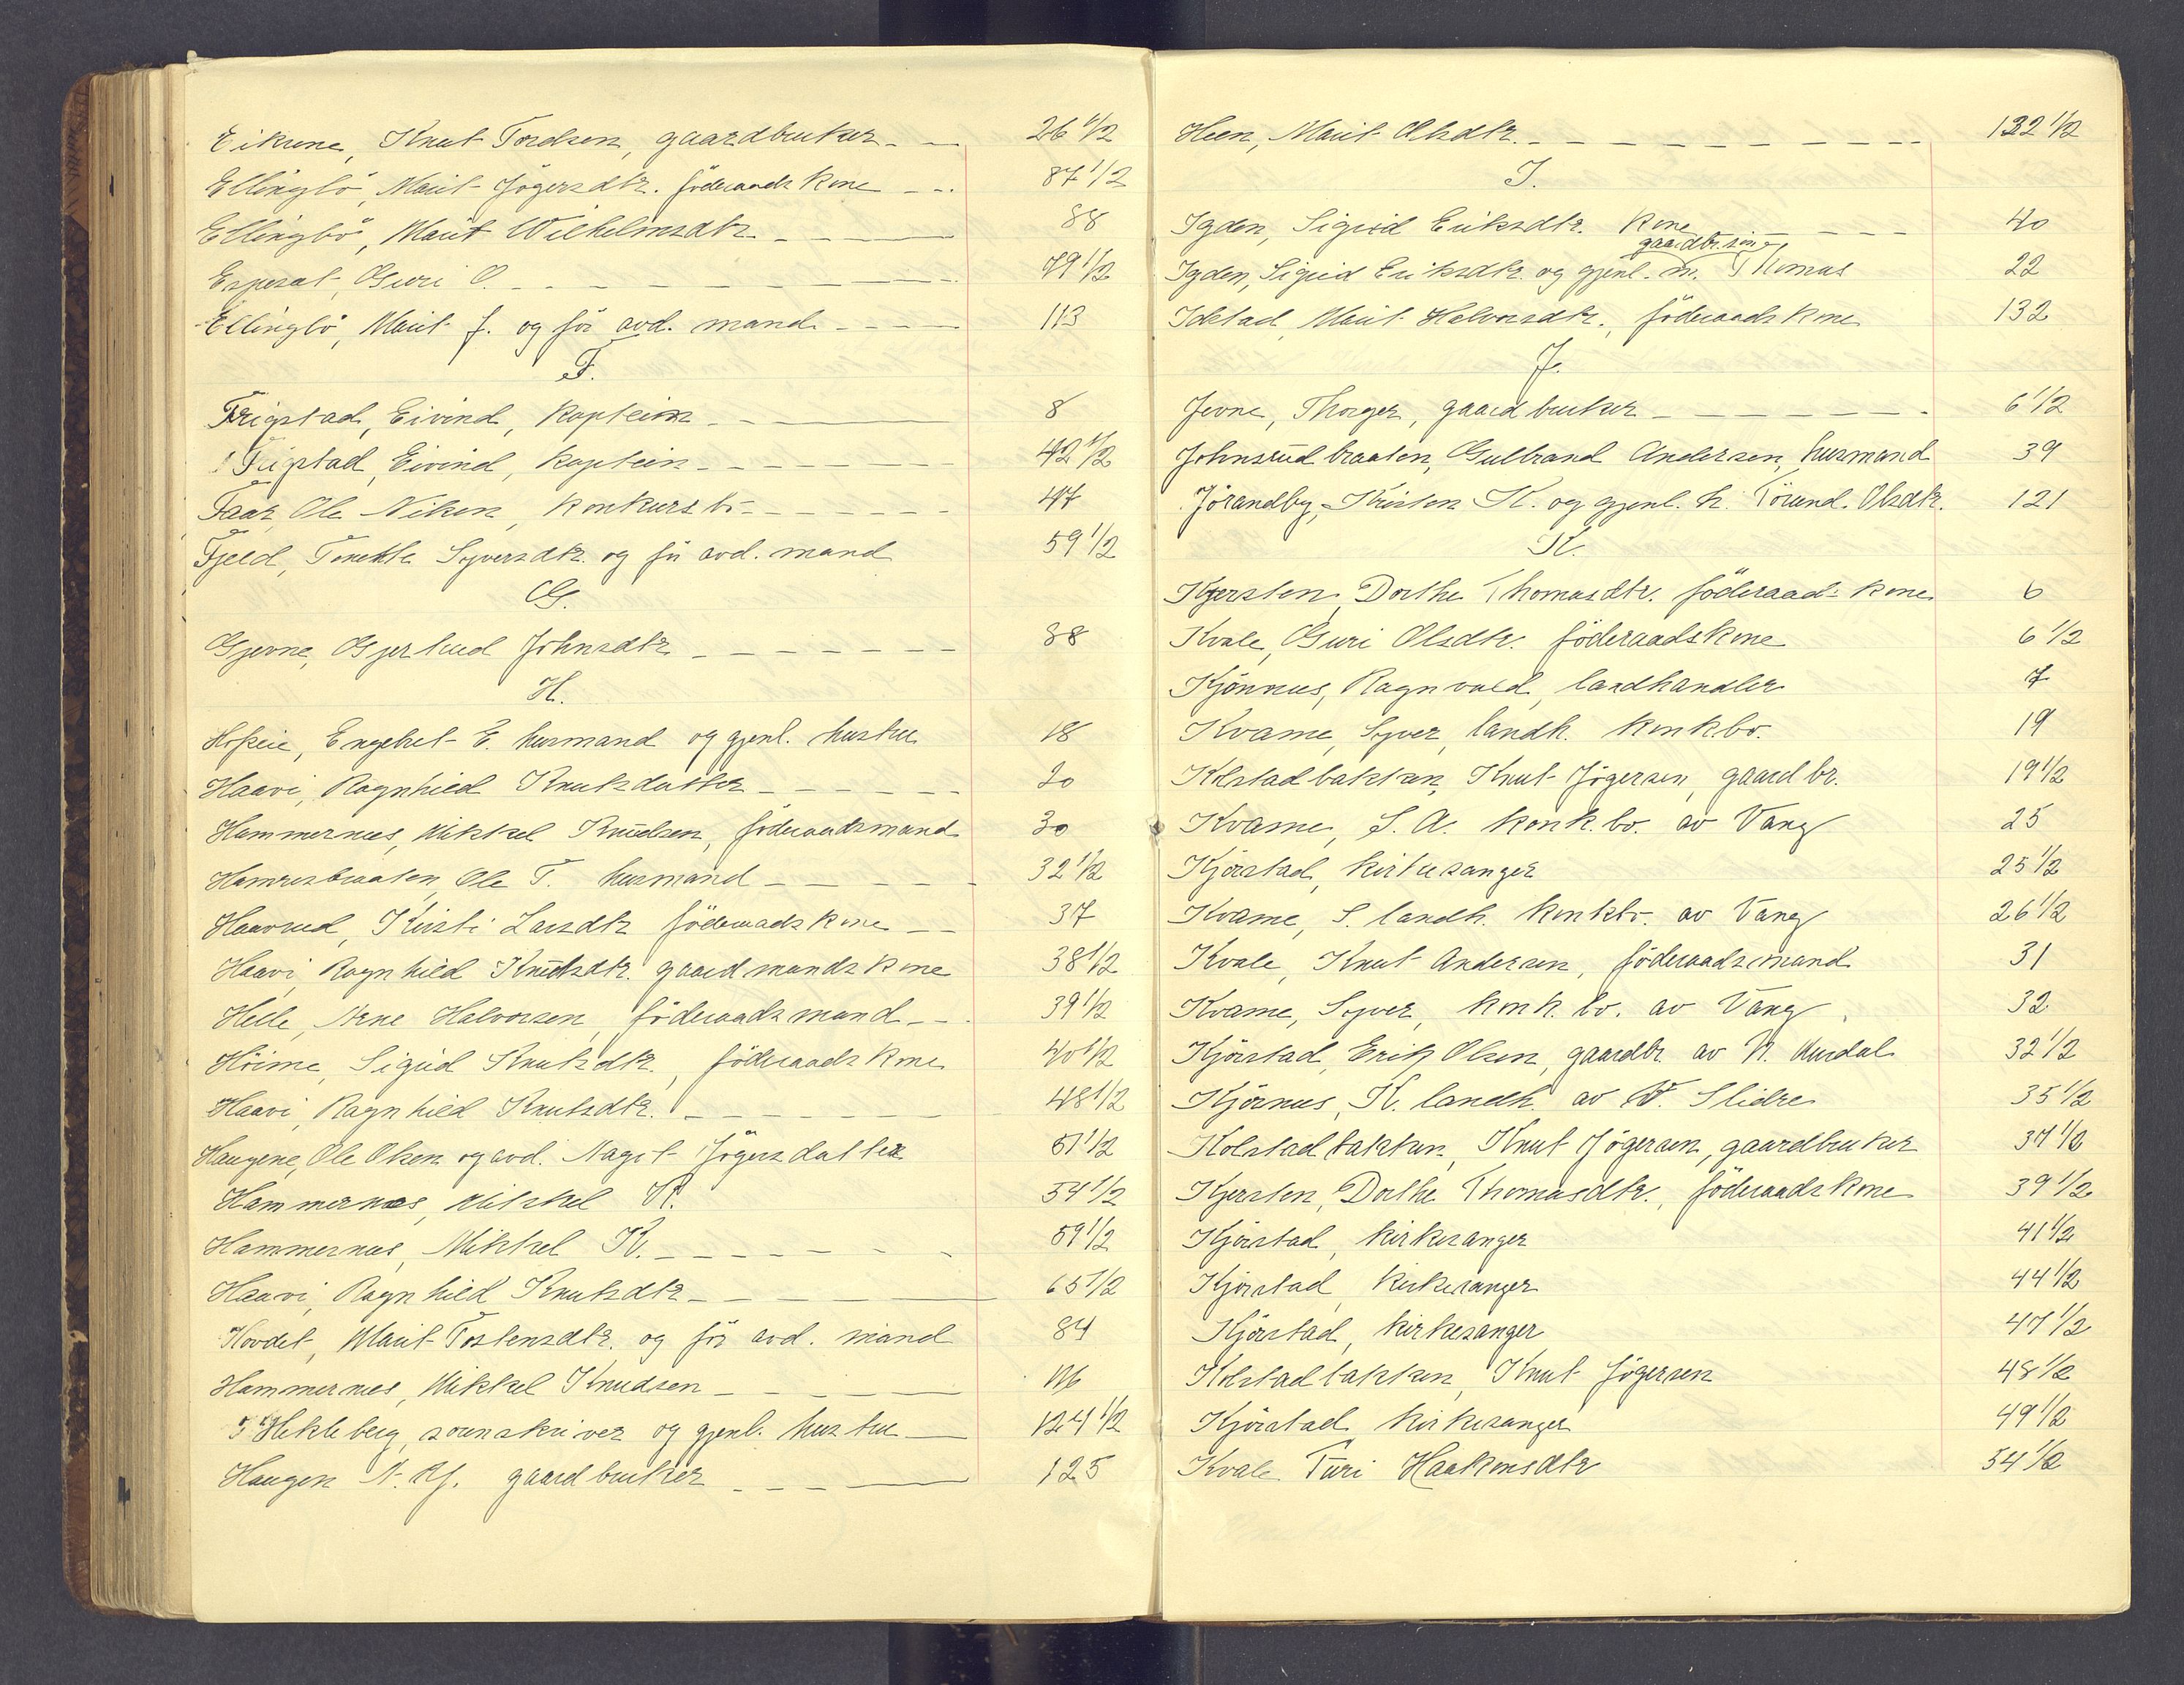 Eikrene, Knut Tordsen, gaardbruker 26 1/2
Ellingbö, Marit Jögersdtr. föderaadskone 87 1/2
Ellingbö, Marit Wilhelmsdtr. 88
Guri O. 79 1/2
Ellingbö, Marit J. og för avd. mand 113
F.
Frigstad, Eivind, kaptein 8
Frigstad, Eivind, kaptein 42 1/2
Faar, Ole Nilsen, konkursbo 47
Fjeld, Syversdtr. og för avd. mand 59 1/2
G.
Gjevne, Gjertrud Johnsdtr. 38
H.
Engebret E. husmand og gjenl. hustru 18
Haavi, Ragnhild Knutsdatter 20
Hammernes, Mikkel Knudsen, föderaadsmand 30
Hamresbraaten, Ole T. husmand 32 1/2
Haavrud, Kirsti Larsdtr föderaadskone 37
Haavi, Ragnhild Knutsdtr. gaardmandskone 38 1/2
Helle, Arne Halvorsen, föderaadsmand 39 1/2
Höime, Sigrid Knutsdtr., föderaadskone 40 1/2
Haavi, Ragnhild Knutsdtr. 48 1/2
Haugene, Ole Olsen og avd. Magit Jögersdatter 51 1/2
Hammernæs, Mikkel K. 54 1/2
Hammernes, Mikkel K. 59 1/2
Haavi, Ragnhild Knutsdtr 65 1/2
Hovdet, Marit Tostensdtr. og för avd. mand 84
Hammernes, Mikkel Knudsen 116
Hekleberg, sorenskriver og gjenl. hustru 124 1/2
Haugen gaardbruker 125
Heen, Marit Olsdtr. 132 1/2
I.
Igden, Sigrid Eriksdtr. kone 40
gaardbr.
Igden, Sigrid Eriksdtr. og gjenl. m. Thomas 22
Idstad, Marit Halvorsdtr., föderaadskone 132
J.
Jevne, Thorger, gaardbruker 6 1/2
Johnsrudbraaten, Gulbrand Andersen, husmand 39
Jörandby, Kristen K. og gjenl. h. Jörund Olsdtr. 121
K.
Kjersten, Dorthe Thomasdtr. föderaads kone 6
Kvale, Guri Olsdtr. föderaadskone 6 1/2
Kjörnæs, Ragnvald, landhandler 7
Kvame, Syver, landh. konk.bo. 19
Kolstadbakken, Knut Jögersen, gaardbr. 19 1/2
Kvame, S. A. konk.bo. av Vang 25
Kjörstad, kirkesanger 25 1/2
Kvame, S. landh. konkbo. av Vang 26 1/2
Kvale, Knut Andersen, föderaadsmand 31
Kvame, Syver, konk. bo. av Vang 32
Kjörstad, Erik Olsen, gaardbr. av N. Aurdal 32 1/2
Kjörnæs, K. landh. av V. Slidre 35 1/2
Kolstadbakken, Knut Jögersen, gaardbruker 37 1/2
Kjersten, Dorthe Thomasdtr., föderaadskone 39 1/2
Kjörstad, kirkesanger 41 1/2
Kjörstad, kirkesanger 44 1/2
Kjörstad, kirkesanger 47 1/2
Kolstadbakken, Knut Jögersen 48 1/2
Kjörstad, kirkesanger 49 1/2
Kvale Turi Haakonsdtr 54 1/2